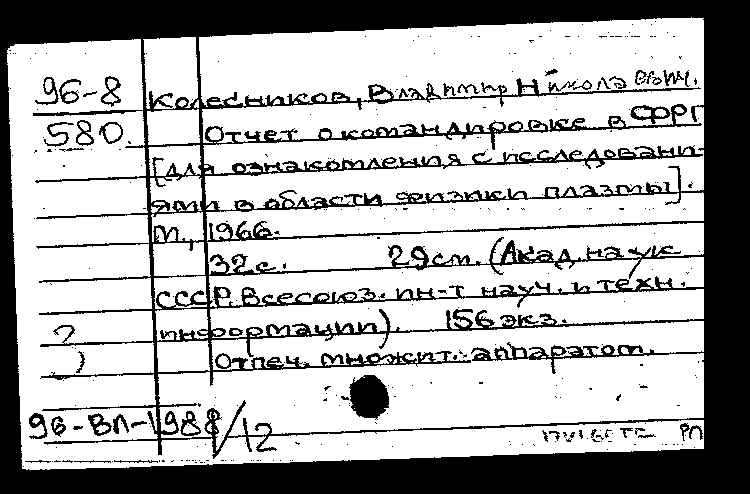 96-8 Колесников, Владимир Николаевич.
580. Отчет о командировке в ФРГ
[для ознакомления с исследовани-
ями в области физики плазмы].
М., 1966.
32 с. 29 см. (Акад. наук
СССР. Всесоюз. ин-т науч. и техн.
информации). 156 экз.
Отпеч. множит. аппаратом.
96-ВЛ-1988/12
РП